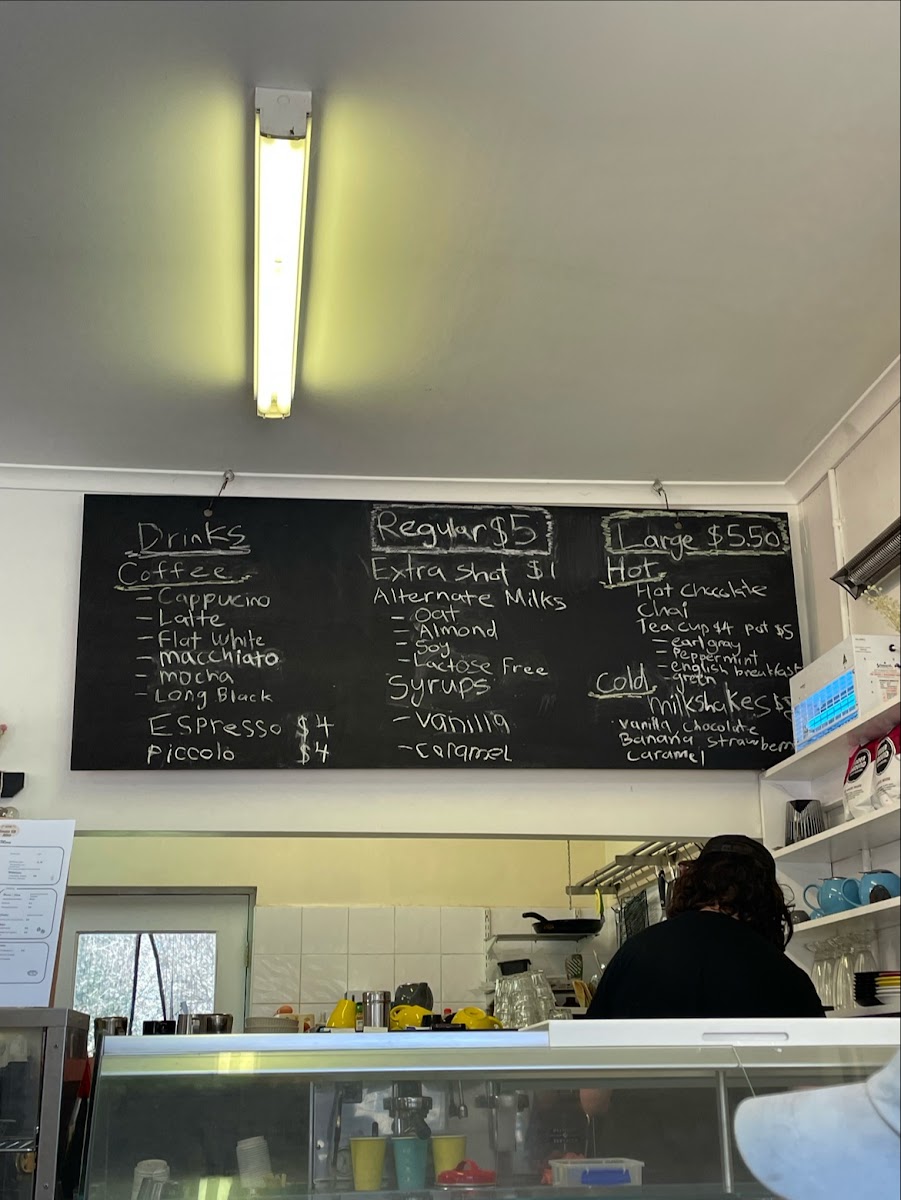 Drinks
Coffee
- Cappucino
- Latte
- Flat White
- macchiato
- mocha
- Long Black
Espresso $4
Piccolo $4
Regular $5
Extra shot $1
Alternate Milks
- Oat
- Almond
- Soy
- Lactose Free
Syrups
- Vanilla
- Caramel
Large $5.50
Hot
Hot Chocolate
Chai
Tea cup $4 pot $5
- earl gray
- Peppermint
- english breakfast
- green
Cold
Milkshakes
Vanilla Chocolate
Banana, Strawberry
Caramel